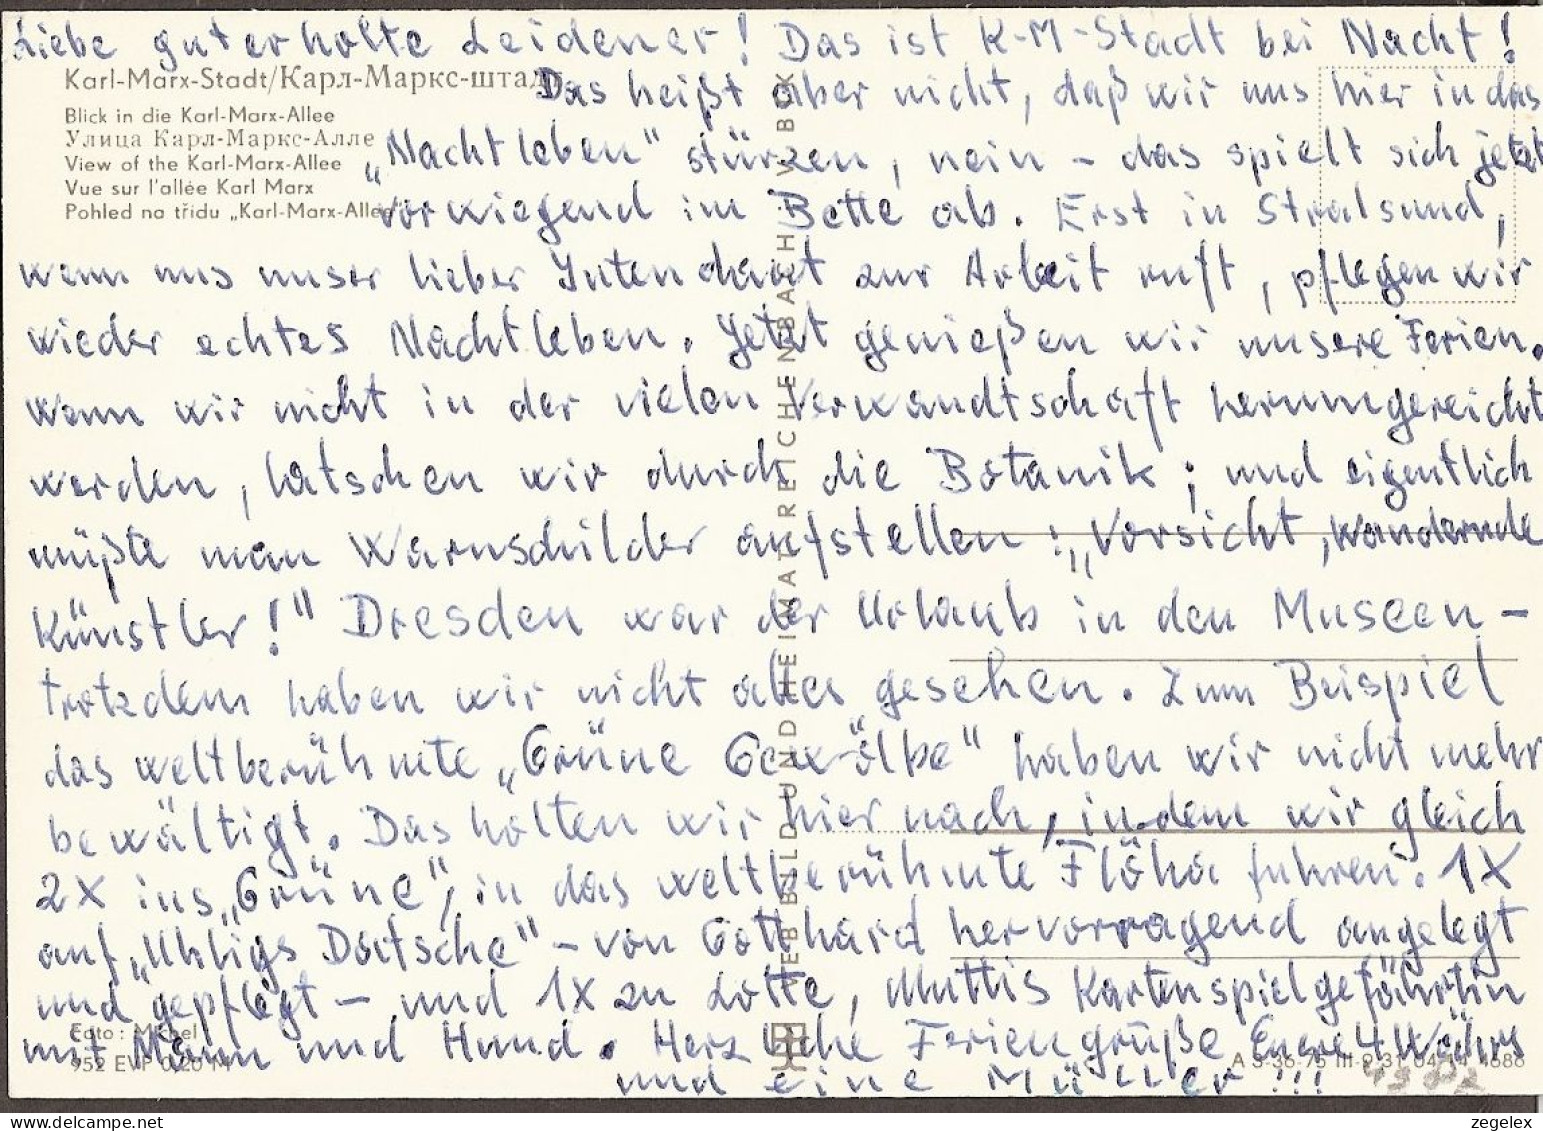 Liebe guterholte Leidener! Das ist K-M-Stadt bei Nacht!
Karl-Marx-Stadt/Карл-Маркс-штадт
Das heißt aber nicht, daß wir uns hier in das
Blick in die Karl-Marx-Allee
Улица Карл-Маркс-Алле
„Nachtleben" stürzen, nein – das spielt sich jetzt
View of the Karl-Marx-Allee
Vue sur l'allée Karl Marx
Pohled na třídu „Karl-Marx-Allee"
vorwiegend im Bette ab. Erst in Stralsund,
wenn uns unser lieber Intendant zur Arbeit ruft, pflegen wir
wieder echtes Nachtleben. Jetzt genießen wir unsere Ferien.
Wenn wir nicht in der vielen Verwandtschaft herumgereicht
werden, latschen wir durch die Botanik; und eigentlich
müßte man Warnschilder aufstellen: „Vorsicht, wandernde
Künstler!" Dresden war der Urlaub in den Museen –
trotzdem haben wir nicht alles gesehen. Zum Beispiel
das weltberühmte „Grüne Gewölbe" haben wir nicht mehr
bewältigt. Das holten wir hier nach, indem wir gleich
2x ins „Grüne", in das weltberühmte Flöha fuhren. 1x
auf „Uhligs Datsche" – von Gotthard hervorragend angelegt
und gepflegt – und 1x zu Lotte, Muttis Kartenspielgefährtin
mit Mann und Hund. Herzliche Feriengrüße Eure 4
und eine Müller!!!
Foto: Michel
952 EVP 0,20 M
VEB BILD UND HEIMAT REICHENBACH I. V. BOX
A 3-36-75 III-9-31 04-14 4686
zegelex